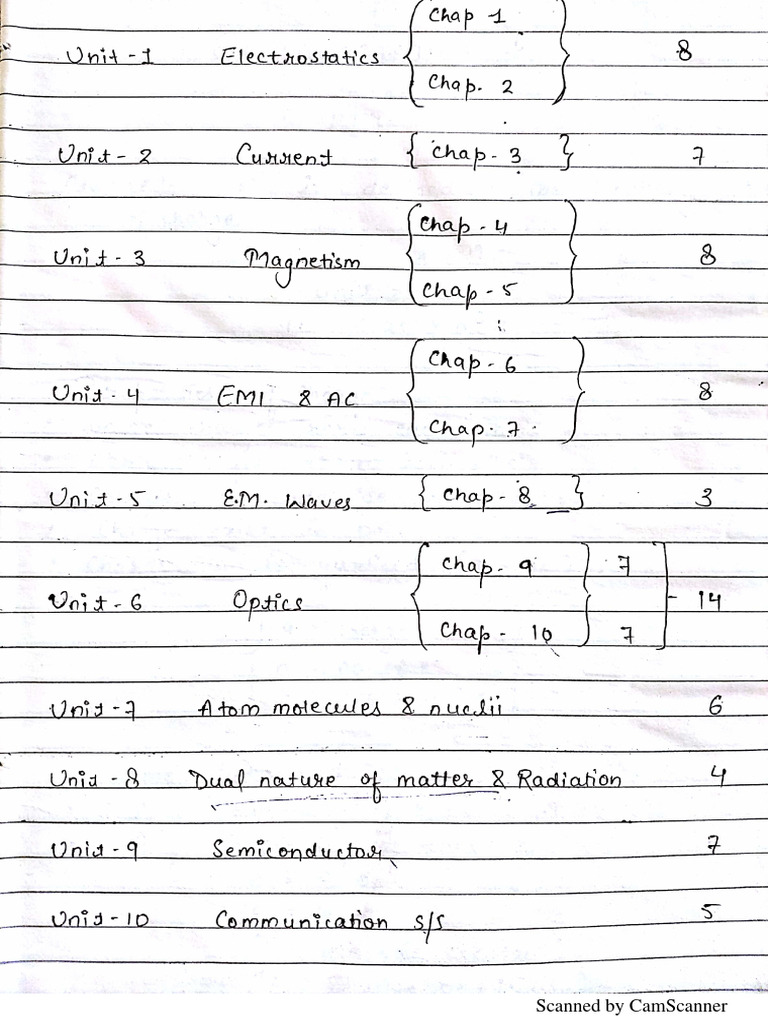 Chap 1
Unit - 1 Electrostatics 8
Chap. 2
Unit - 2 Current { Chap - 3 } 7
Chap - 4
Unit - 3 Magnetism 8
Chap - 5
Chap - 6
Unit - 4 EMI & AC 8
Chap. 7
Unit - 5 E.M. Waves { Chap - 8 } 3
Chap. 9 7
Unit - 6 Optics - 14
Chap - 10 7
Unit - 7 Atom molecules & nuclii 6
Unit - 8 Dual nature of matter & Radiation 4
Unit - 9 Semiconductor 7
Unit - 10 Communication s/s 5
Scanned by CamScanner